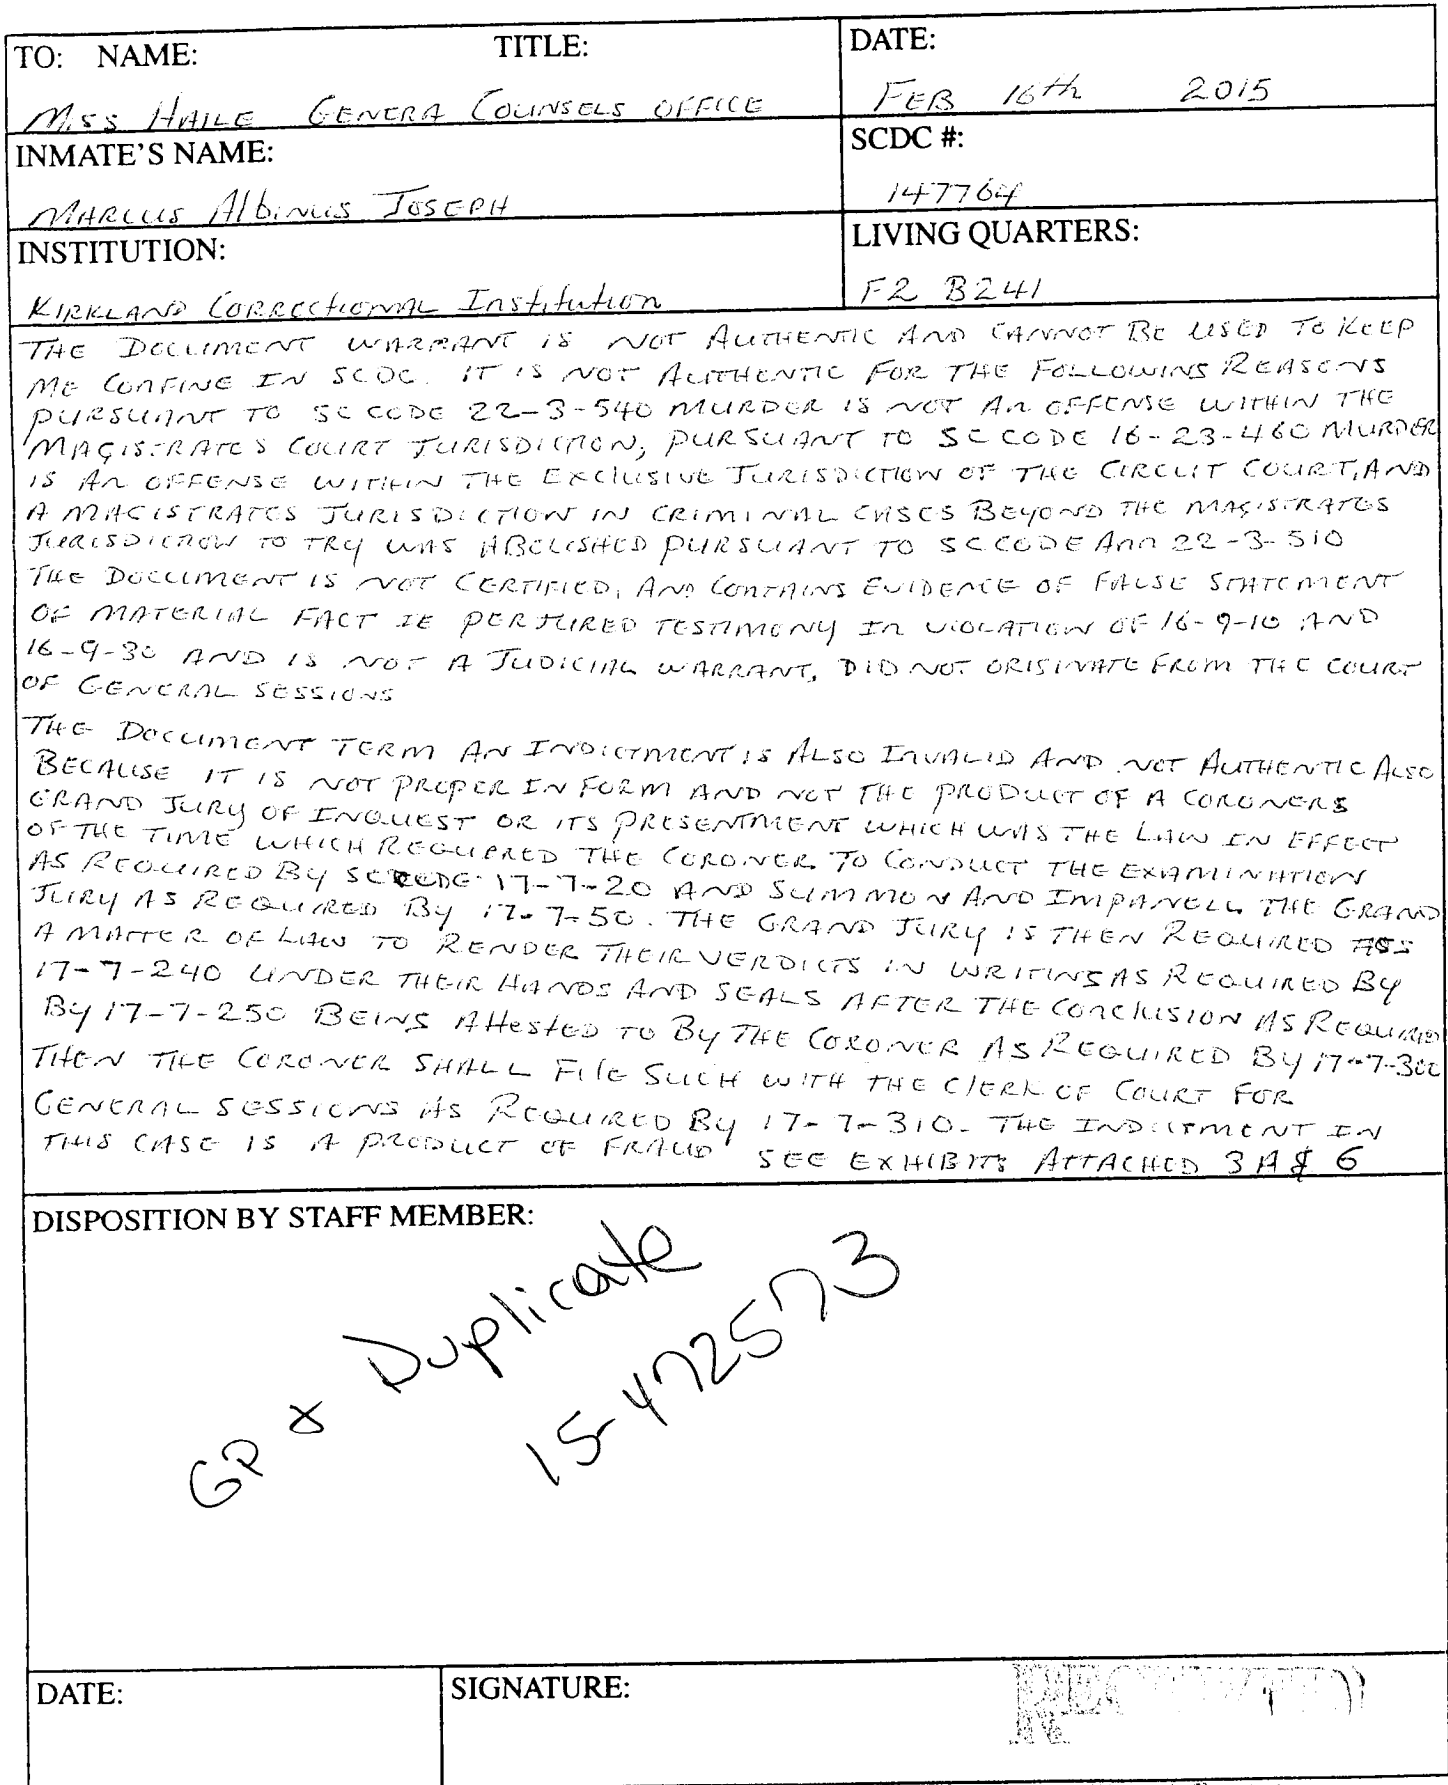 TO: NAME: TITLE: DATE:
MISS HAILE GENERA COUNSELS OFFICE FEB 16th 2015
INMATE'S NAME: SCDC #:
MARCUS AlbinUS JOSEPH 147764
INSTITUTION: LIVING QUARTERS:
KIRKLAND CORRECTIONAL Institution F2 B241
THE DOCUMENT WARRANT IS NOT AUTHENTIC AND CANNOT BE USED TO KEEP
ME CONFINE IN SCDC. IT IS NOT AUTHENTIC FOR THE FOLLOWING REASONS
PURSUANT TO SC CODE 22-3-540 MURDER IS NOT An OFFENSE WITHIN THE
MAGISTRATES COURT JURISDICTION, PURSUANT TO SC CODE 16-23-460 MURDER
IS An OFFENSE WITHIN THE EXCLUSIVE JURISDICTION OF THE CIRCUIT COURT, AND
A MAGISTRATES JURISDICTION IN CRIMINAL CASES BEYOND THE MAGISTRATES
JURISDICTION TO TRY WAS ABOLISHED PURSUANT TO SC CODE Ann 22-3-510
THE DOCUMENT IS NOT CERTIFIED, AND CONTAINS EVIDENCE OF FALSE STATEMENT
OF MATERIAL FACT IE PERJURED TESTIMONY In VIOLATION OF 16-9-10 AND
16-9-30 AND IS NOT A JUDICIAL WARRANT, DID NOT ORIGINATE FROM THE COURT
OF GENERAL SESSIONS
THE DOCUMENT TERM AN INDICTMENT IS ALSO INVALID AND NOT AUTHENTIC ALSO
BECAUSE IT IS NOT PROPER IN FORM AND NOT THE PRODUCT OF A CORONERS
GRAND JURY OF INQUEST OR ITS PRESENTMENT WHICH WAS THE LAW IN EFFECT
OF THE TIME WHICH REQUIRED THE CORONER TO CONDUCT THE EXAMINATION
AS REQUIRED BY SC CODE 17-7-20 AND SUMMON AND IMPANELL THE GRAND
JURY AS REQUIRED BY 17-7-50. THE GRAND JURY IS THEN REQUIRED AS
A MATTER OF LAW TO RENDER THEIR VERDICTS IN WRITING AS REQUIRED BY
17-7-240 UNDER THEIR HANDS AND SEALS AFTER THE CONCLUSION AS REQUIRED
BY 17-7-250 BEING Attested TO BY THE CORONER AS REQUIRED BY 17-7-300
THEN THE CORONER SHALL File SUCH WITH THE ClERK OF COURT FOR
GENERAL SESSIONS AS REQUIRED BY 17-7-310. THE INDICTMENT IN
THIS CASE IS A PRODUCT OF FRAUD SEE EXHIBITS ATTACHED 3 A & 6
DISPOSITION BY STAFF MEMBER:
GP & Duplicate
15-472573
DATE: SIGNATURE: